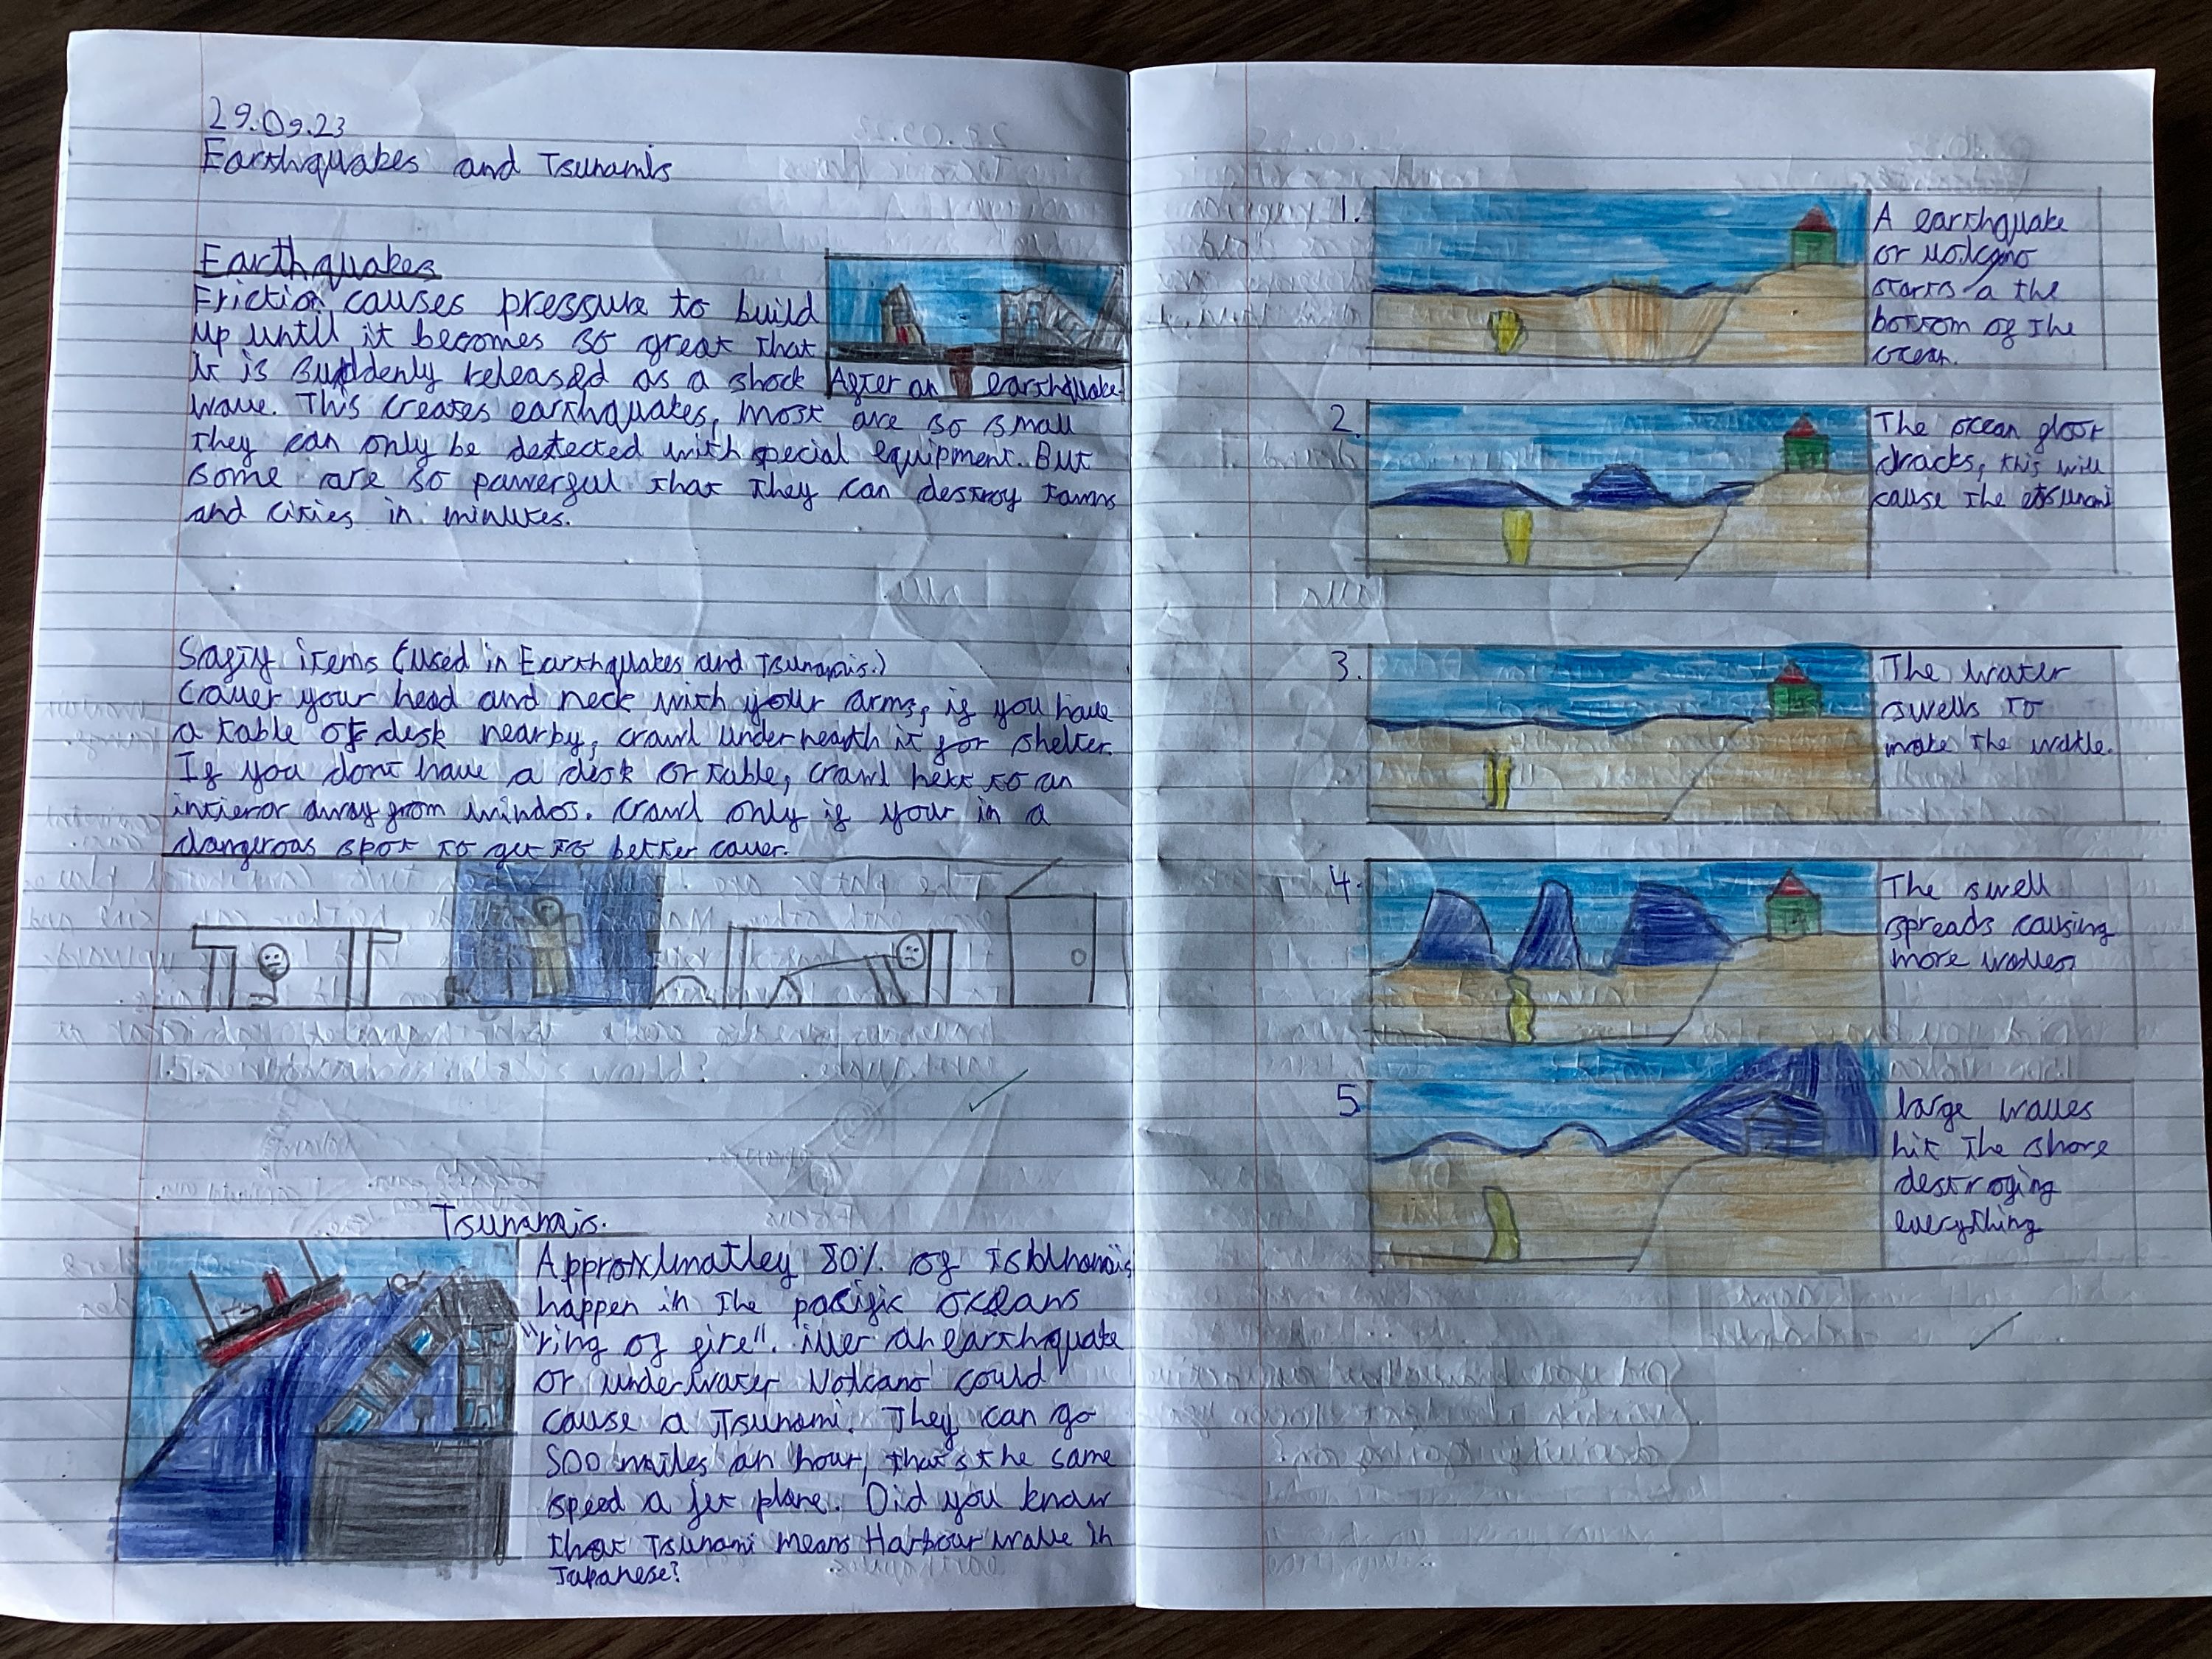 29.09.23
Earthquakes and Tsunamis
Earthquakes
Friction causes pressure to build
up until it becomes so great that
it is suddenly released as a shock
wave. This creates earthquakes, most are so small
they can only be detected with special equipment. But
some are so powerful that they can destroy towns
and cities in minutes.
After an earthquake
Safty items (used in Earthquakes and Tsunamis.)
Cover your head and neck with your arms, if you have
a table or desk nearby, crawl underneath it for shelter.
If you dont have a desk or table, crawl next to an
intieror away from windos. Crawl only if your in a
dangeroas spot to get to better cover.
Tsunamis.
Approximatley 80% of tsunamis
happen in the pacific oceans
"ring of fire". an earthquake
or underwater Volcano could
cause a Tsunami. They can go
500 miles an hour, that's the same
speed a jet plane. Did you know
that Tsunami means Harbour wave in
Japanese?
1.
A earthquake
or volcano
starts a the
bottom of the
ocean.
2.
The ocean floor
cracks, this will
cause the tsunami
3.
The water
swells to
make the
4.
The swell
spreads causing
more
5
large waves
hit the shore
destroying
everything